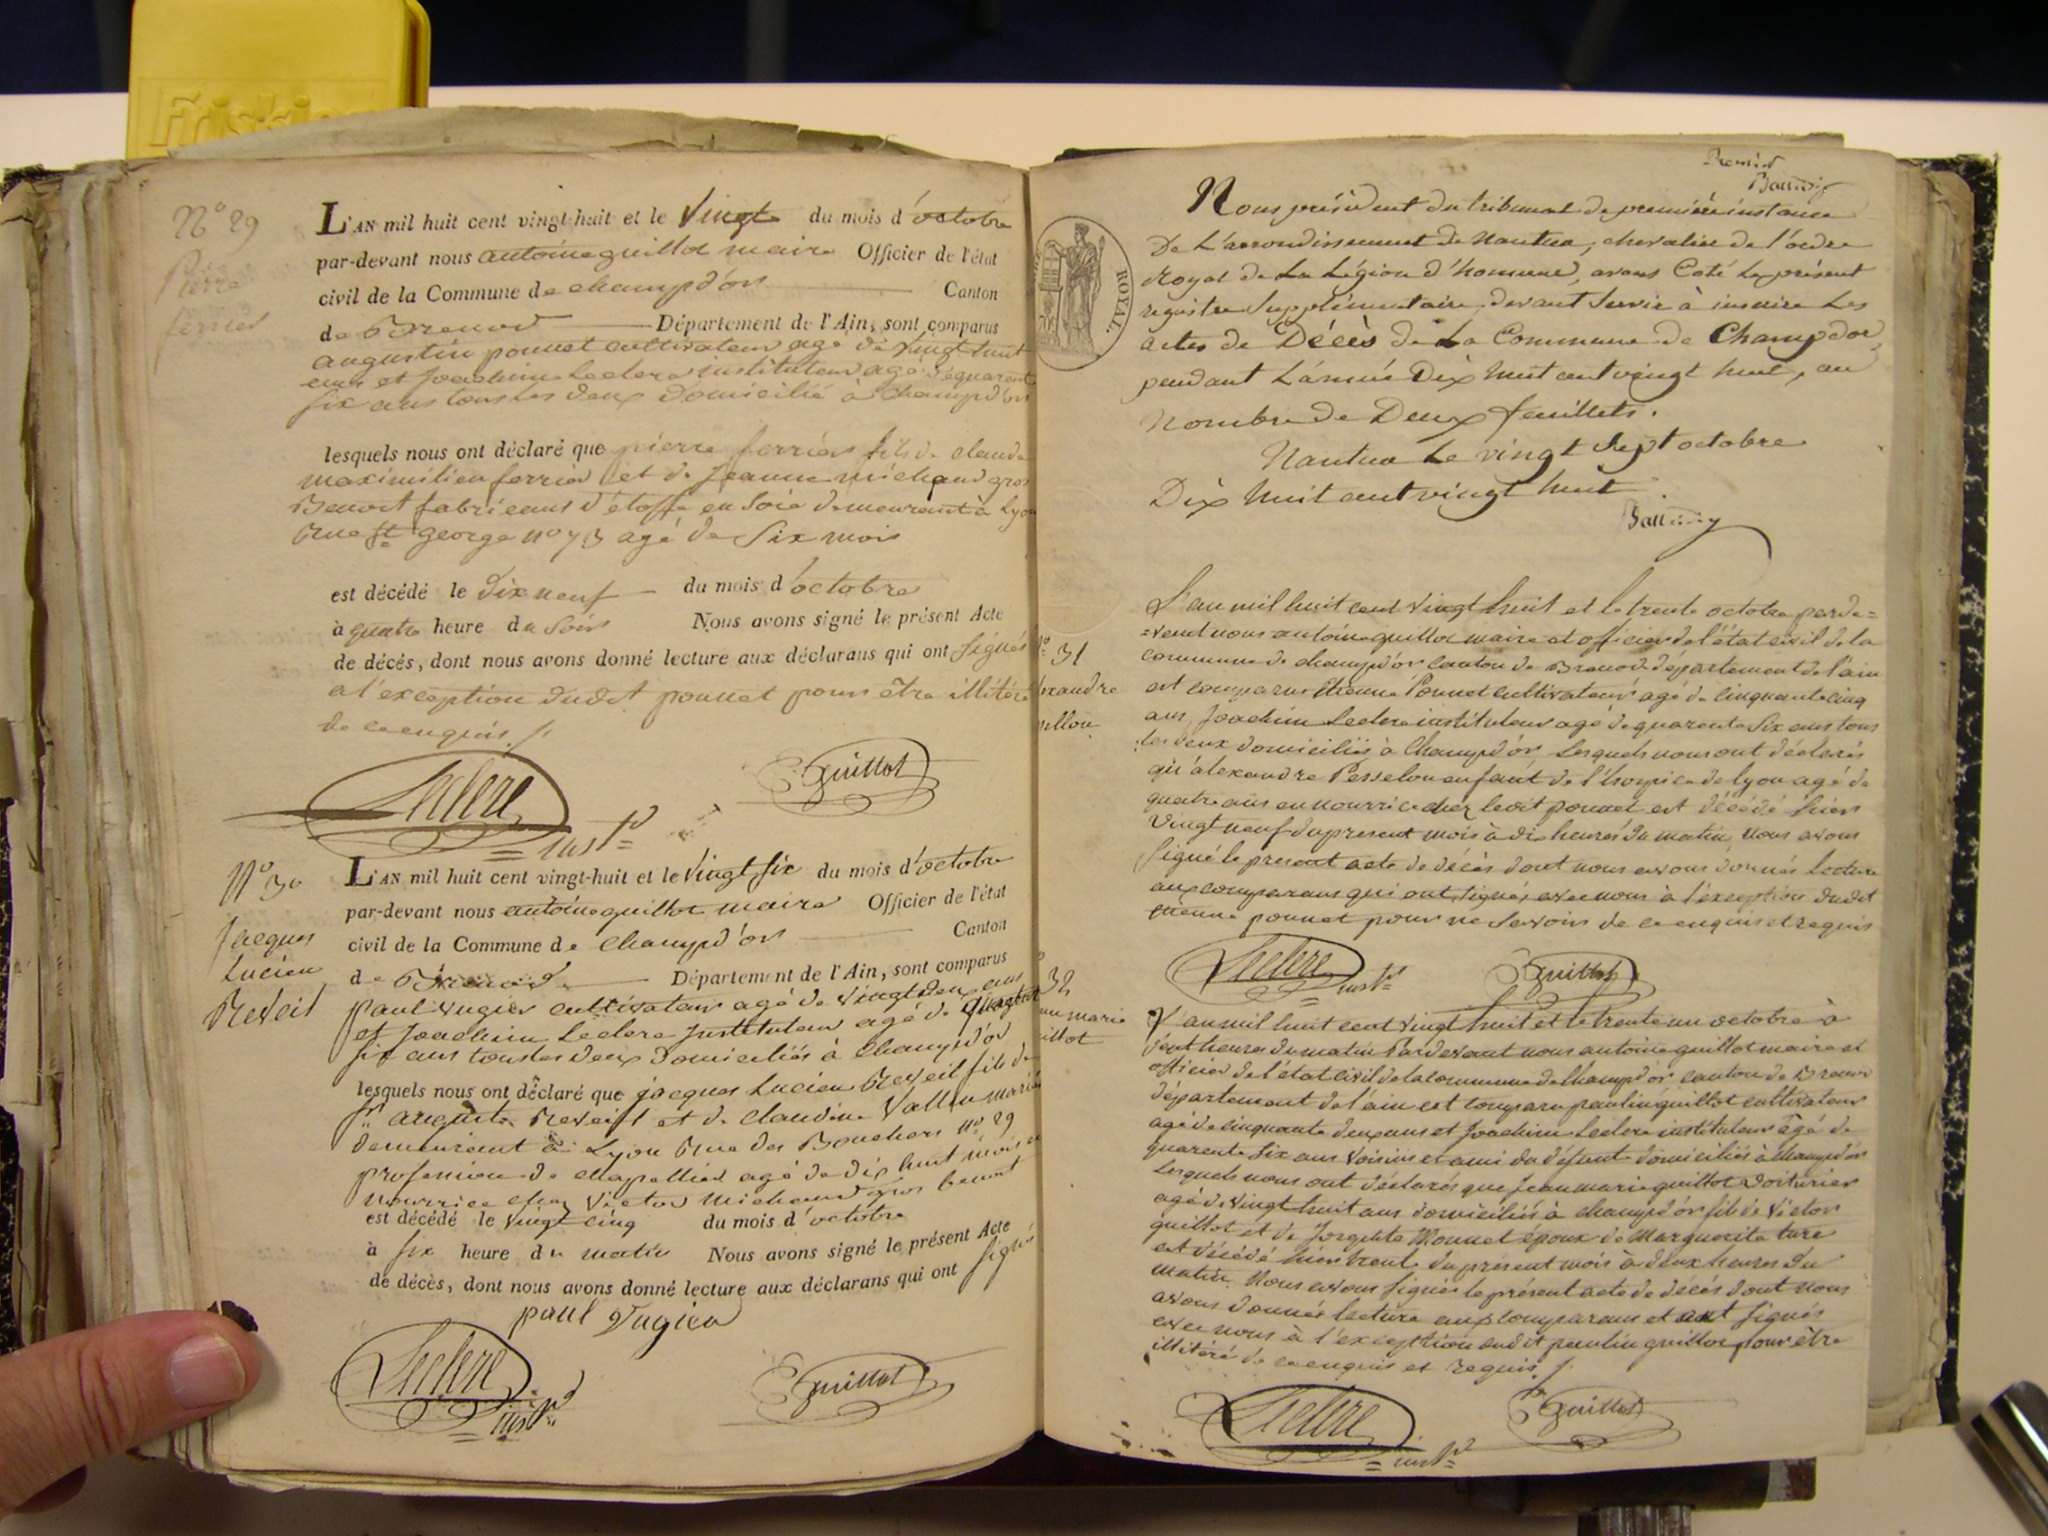 Friskies
N° 29
Pierre
ferrier
L'AN mil huit cent vingt-huit et le Vingt du mois d'octobre
par-devant nous antoine guillot maire Officier de l'état
civil de la Commune de champd'or Canton
de Brenod Département de l'Ain, sont comparus
augustin ponnet cultivateur agé de vingt huit
ans et Joachim Leclere instituteur agé de quarente
six ans tous les deux domicilié à Champd'or
lesquels nous ont déclaré que pierre ferrier fils de claude
maximilien ferrier et de Jeanne michaud gros
Benoit fabricans d'étoffe en Soie demeurant à Lyon
Rue St george no 73 agé de Six mois
est décédé le dix neuf du mois d'octobre
à quatre heure du Soir Nous avons signé le présent Acte
de décés, dont nous avons donné lecture aux déclarans qui ont signés
a l'exception dudit ponnet pour être illitéré
de ce enquis
Leclere
inst.
guillot
N° 30
Jacques
Lucien
Reveil
L'AN mil huit cent vingt-huit et le Vingt Six du mois d'octobre
par-devant nous antoine guillot maire Officier de l'état
civil de la Commune de Champd'or Canton
de Brenod Département de l'Ain, sont comparus
paul Vugier cultivateur agé de Vingt deux ans
et Joachim Leclere Instituteur agé de quarente
six ans tous les deux Domiciliés à Champd'or
lesquels nous ont déclaré que jacques Lucien Reveil fils de
Sr. auguste Reveil et de Claudine Vallin mariés
demeurant à Lyon Rue des Bouchers no. 29
profession de chapellier agé de dix huit mois en
nourrice chez Victor michaud gros benoit
est décédé le vingt cinq du mois d'octobre
à six heure du matin Nous avons signé le présent Acte
de décès, dont nous avons donné lecture aux déclarans qui ont signé
paul Vugier
Leclere
inst.
guillot
Premier
Baudin
Nous président du tribunal de première instance
De L'arrondissement de Nantua, chevalier de l'ordre
Royal de La Légion d'honneur, avons Coté Le présent
registre Supplémentaire, devant Servir à inscrire Les
actes de Décès de La Commune de Champdor,
pendant L'année Dix huit cent vingt huit, au
Nombre de Deux feuillets.
Nantua Le vingt Sept octobre
Dix huit cent vingt huit
ROYAL.
N° 31
exandre
sellon
L'an mil huit cent vingt huit et le trente octobre parde=
=vent nous antoine guillot maire et officier de l'état civil de la
commune de champd'or canton de Brenod département de l'ain
est comparus Etienne Ponnet cultivateur agé de cinquante cinq
ans, Joachim Leclere instituteur agé de quarente six ans tous
les deux domiciliés à Champd'or Lesquels nous ont déclarés
qu'alexandre Pesselon enfant de l'hospice de lyon agé de
quatre ans en nourrice chez ledit ponnet est décédé hier
vingt neuf du present mois à dix heures du matin, Nous avons
signé le present acte de décès dont nous avons donnés lecture
aux comparans qui ont signés avec nous à l'exception dudit
etienne ponnet pour ne savoir de ce enquis et requis
Leclere
inst.
guillot
32
an marie
illot
L'an mil huit cent vingt huit et le trente un octobre à
sept heures du matin Pardevant nous antoine guillot maire et
officier de l'état civil de la commune de Champd'or canton de Brenod
département de l'ain est comparu paulin guillot cultivateur
agé de cinquante deux ans et Joachim Leclere instituteur âgé de
quarente six ans voisins et ami du défunt domiciliés à champd'or
Lesquels nous ont déclarés que Jean marie guillot voiturier
agé de vingt huit ans domiciliés à champd'or fils de Victor
guillot et de Josephte Monnet epoux de Marguerite ture
est décédé hier trente du présent mois à deux heures du
matin. Nous avons signés le présent acte de décés dont nous
avons donnés lecture aux comparans et ont signés
avec nous à l'exception dudit paulin guillot pour être
illitéré de ce enquis et requis
Leclere
inst.
guillot